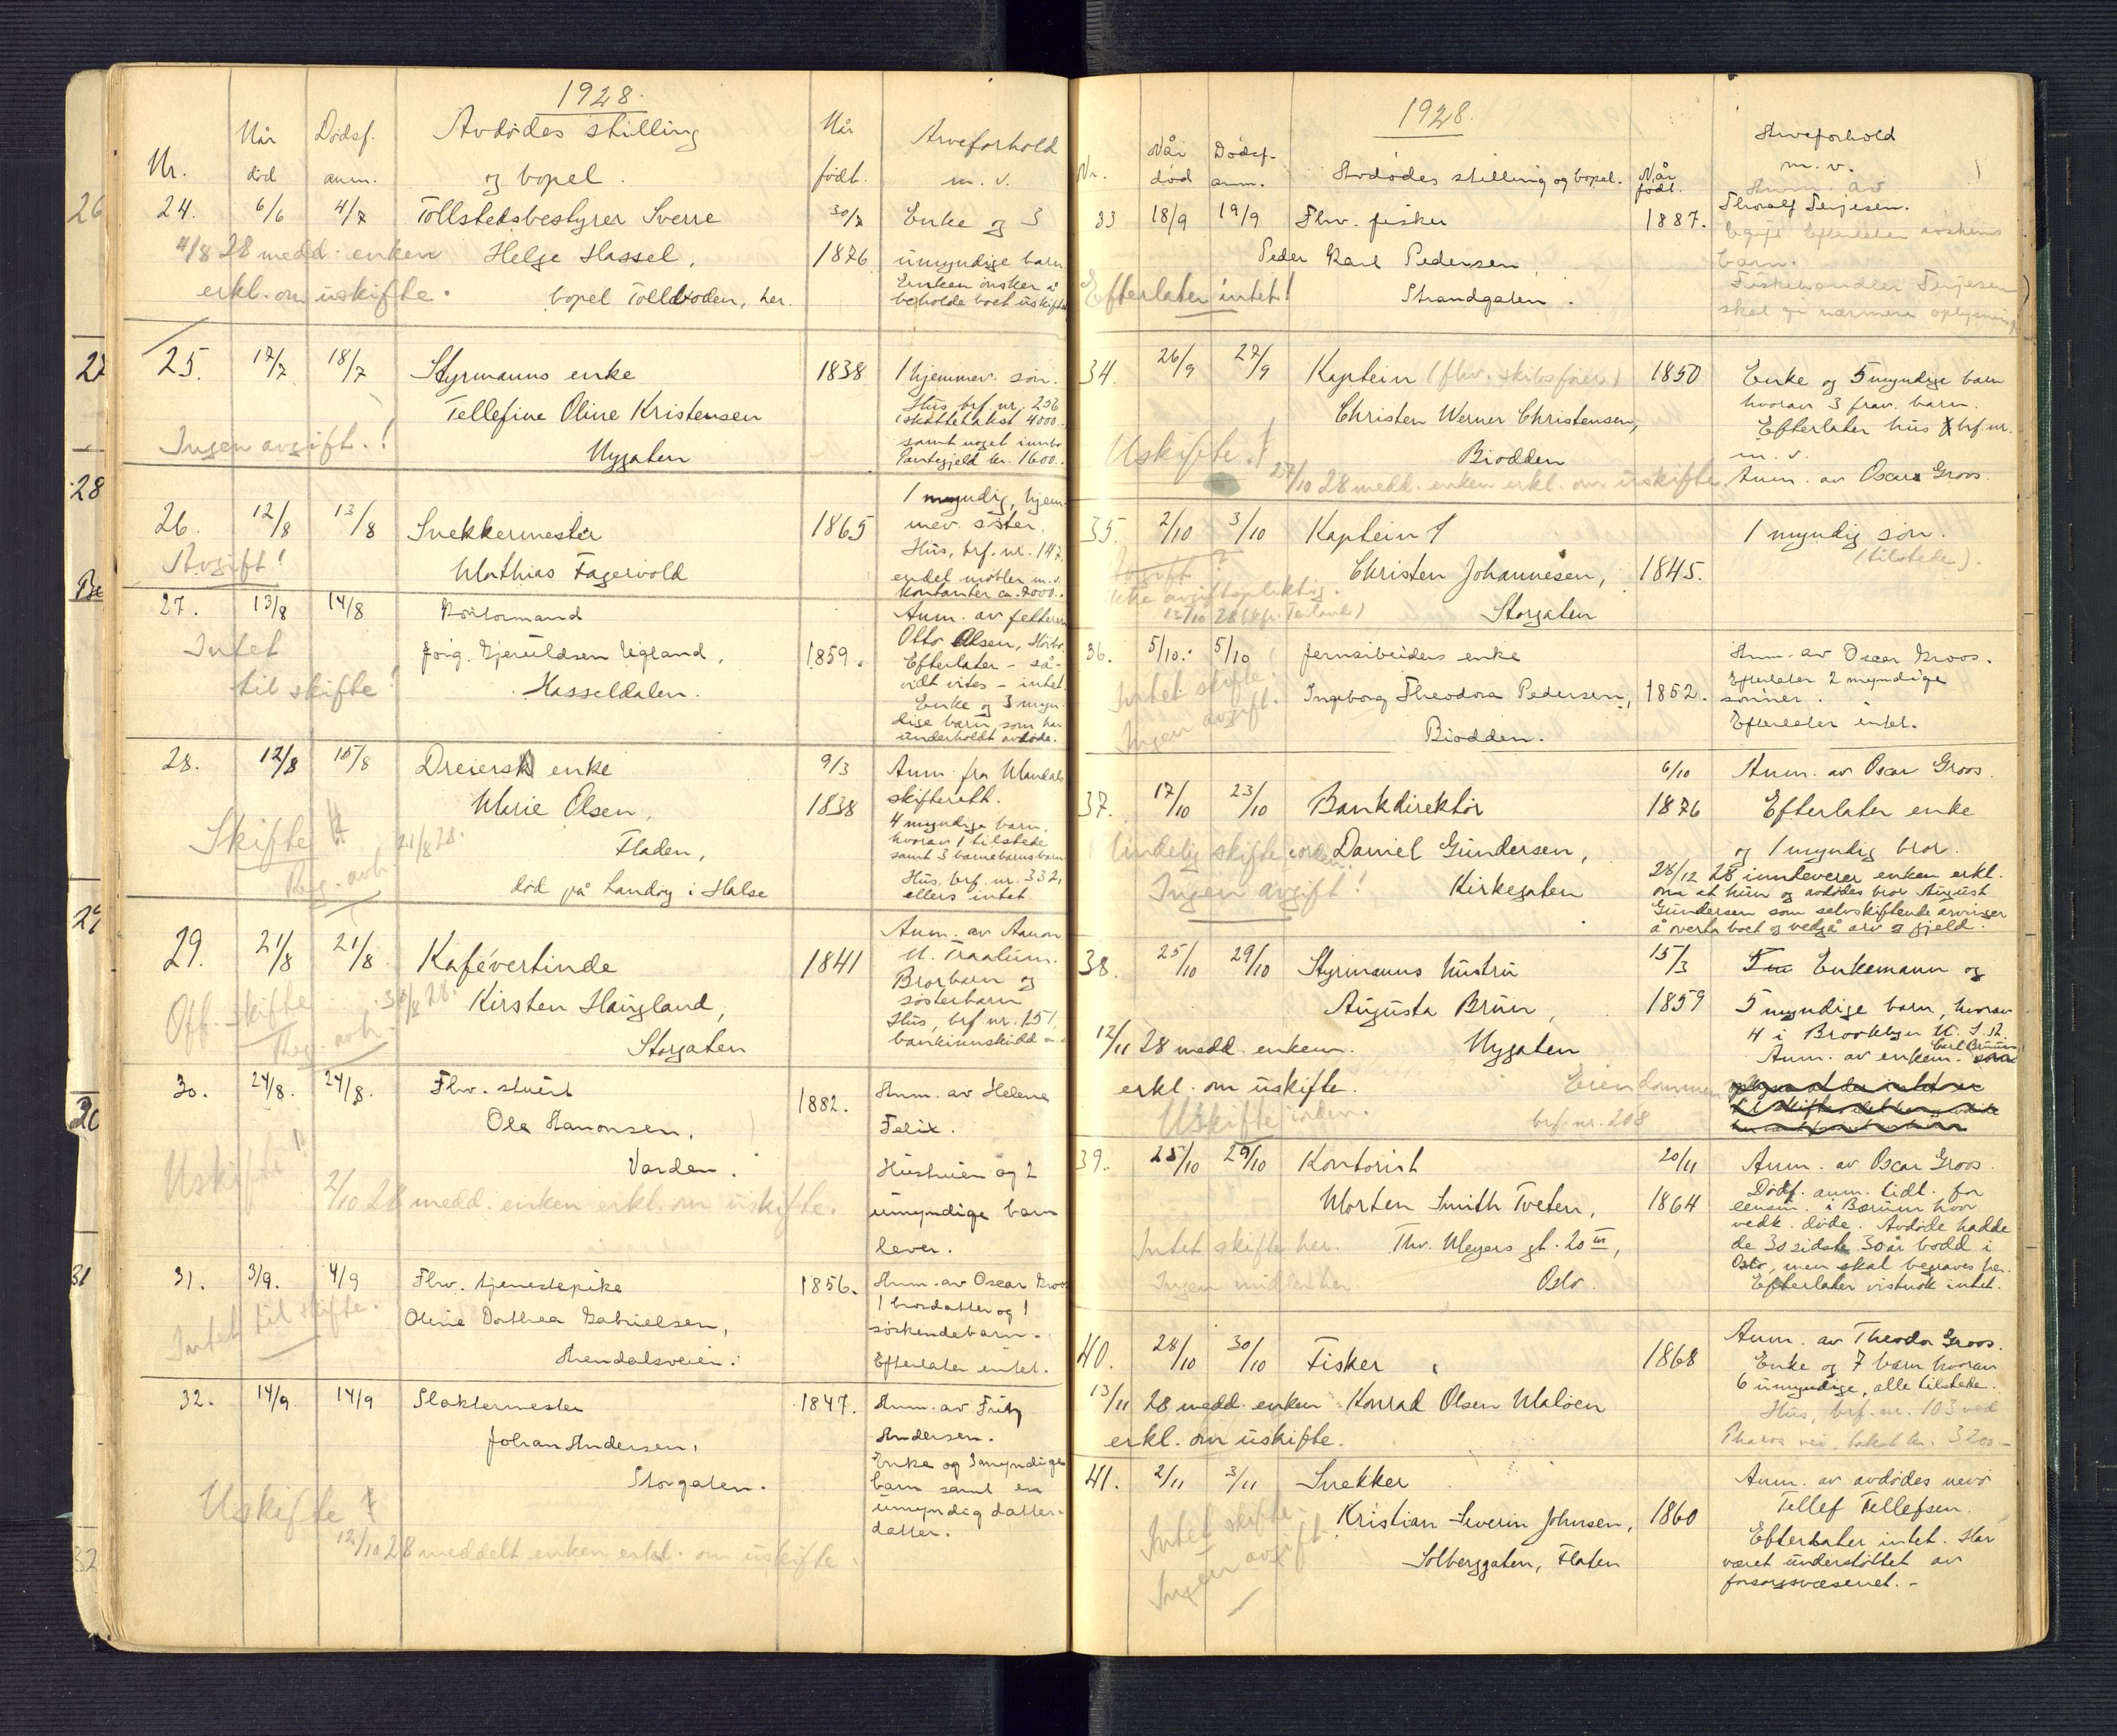 1928.
Nr.
Når død
Dødsf. anm.
Avdødes stilling og bopel.
Når født.
Arveforhold m. v.
24. 6/6 4/7 Tollstedsbestyrer Sverre 30/7 Enke og 3
4/8 28 medd. enken Helge Hassel, 1876 umyndige barn.
Enken ønsker å
erkl. om uskifte. bopel Tollboden, her. beholde boet uskiftet
25. 17/7 18/7 Styrmanns enke 1838 1 hjemmev. søn.
Tellefine Oline Kristensen Hus, brf. nr. 256
(skattetakst 4000.
Ingen avgift.! samt noget innbo
Nygaten Pantegjeld kr. 1600.
1 myndig, hjem-
26. 12/8 13/8 Snekkermester 1865 mev. søster.
Avgift! Hus, brf. nr. 147,
Mathias Fagervold endel møbler m. v.
kontanter ca. 2000.
27. 13/8 14/8 Anm. av fetteren
Intet Otto Olsen,
Jørg. Gjeruldsen Ugland, 1859. Efterlater - så-
til skifte! Hasseldalen. vidt vites - intet.
Enke og 3 myn-
dige barn, som har
underholdt avdøde.
28. 12/8 15/8 Dreiers enke 9/3 Anm. fra Mandals
Marie Olsen, 1838 skifterett.
4 myndige barn,
Skifte 21/8 28. hvorav 1 tilstede
Fladen, samt 3 barnebarnsbarn
Reg. avh. Hus, brf. nr. 332,
død på Landøy i Halse ellers intet.
29. 21/8 21/8 Kafévertinde 1841 Anm. av Aanon
N. Traalum.
Off. skifte 30/8 28. Kirsten Haugland, Brorbarn og
søsterbarn
Reg. avh. Hus, brf. nr. 151,
Storgaten bankinnskudd
30. 24/8. 24/8. Fhv. stuert 1882. Anm. av Helene
Ole Aanonsen, Felix.
Uskifte! Varden. Hustruen og 2
2/10 28 medd. enken erkl. om uskifte. umyndige barn
lever.
31. 3/9. 4/9 Fhv. tjenestepike 1856. Anm. av Oscar Groos
Intet til skifte. 1 brordatter og 1
Oline Dorthea Gabrielsen, søskendebarn.
Arendalsveien. Efterlater intet.
32. 14/9. 14/9 Slaktermester 1847. Anm. av Fritz
Johan Andersen, Andersen.
Storgaten. Enke og 3 myndige
barn samt en
Uskifte umyndig datter-
12/10 28 meddelt enken erkl. om uskifte. datter.
1928.
Nr.
Når død
Dødsf. anm.
Avdødes stilling og bopel.
Når født.
Arveforhold m. v.
Anm. av
33 18/9 19/9 Fhv. fisker 1887. Thoralf Terjesen.
Peder Karl Pedersen, Efterlater
barn.
Efterlater intet! Strandgaten. Fiskehandler Terjesen
skal gi nærmere oplysning
34. 26/9 27/9 Kaptein (fhv. skibsfører) 1850 Enke og 5 myndige barn
hvorav 3 frav. barn.
Christen Werner Christensen, Efterlater hus brf. nr.
Uskifte! Biodden m. v.
27/10 28 medd. enken erkl. om uskifte Anm. av Oscar Groos.
35. 2/10 3/10 Kaptein 1 myndig søn.
Avgift? Christen Johannesen, 1845. (tilstede).
Ikke avgiftspliktig.
Storgaten
36. 5/10. 5/10 Jernarbeiders enke Anm. av Oscar Groos.
Intet skifte. Efterlater 2 myndige
Ingeborg Theodora Pedersen, 1852. sønner.
Ingen avgift. Biodden. Efterlater intet.
6/10 Anm. av Oscar Groos.
37. 17/10 23/10 Bankdirektør 1876 Efterlater enke
Daniel Gundersen, og 1 myndig bror.
Ingen avgift! Kirkegaten 28/12 28 innleverer enken erkl.
om at hun og avdødes bror August
Gundersen som selvskiftende arvinger
å overta boet og vedgå arv og gjeld.
38. 25/10 29/10 Styrmanns hustru 15/3 Enkemann og
Augusta Bruun, 1859 5 myndige barn, hvorav
4 i Brooklyn U. S. A.
12/11 28 medd. enkem. Nygaten Anm. av enkem. Carl Bruun
erkl. om uskifte. Eiendommen
Uskifte iorden. brf. nr. 208
39. 25/10 29/10 Kontorist 20/11 Anm. av Oscar Groos.
Morten Smith Tveten, 1864 Dødf. anm. tidl. for
lensm. i Bærum hvor
vedk. døde. Avdøde hadde
Intet skifte her. Thv. Meyers gt. 20 III, de 30 sidste 30 år bodd i
Oslo, men skal begraves her.
Ingen midler her Oslo. Efterlater vistnok intet.
40. 28/10 30/10 Fisker 1868 Anm. av Theodor Groos.
Enke og 7 barn hvorav
6 umyndige, alle tilstede.
13/11 28 medd. enken Konrad Olsen Maløen Hus, brf. nr. 103 ved
erkl. om uskifte. Pharos vei, takst kr. 3200-
41. 2/11 3/11 Snekker Anm. av avdødes nevø
Intet skifte. Tellef Tellefsen.
Kristian Severin Johnsen, 1860 Efterlater intet. Har
Ingen avgift Solberggaten, Flaten været understøttet av
forsorgsvæsenet. -